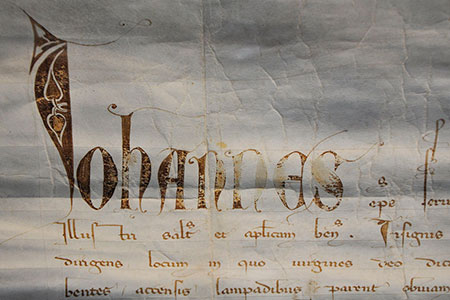 Iohannes epc seru
Illustri salt et aplicam ben Insignis
dirigens locum in quo virgines deo dica
bentes accensis lampadibus parent obuiam